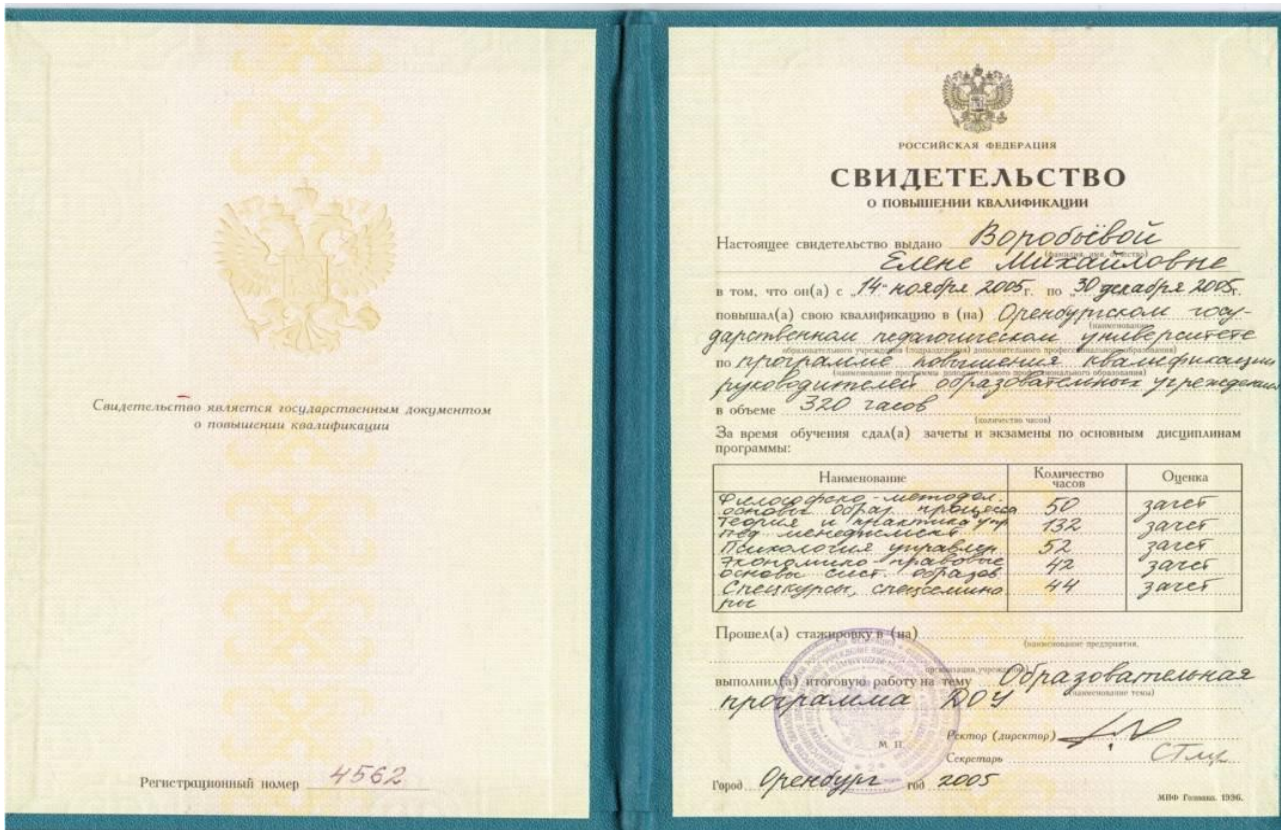 Свидетельство является государственным документом
о повышении квалификации
Регистрационный номер 4562
РОССИЙСКАЯ ФЕДЕРАЦИЯ
СВИДЕТЕЛЬСТВО
О ПОВЫШЕНИИ КВАЛИФИКАЦИИ
Настоящее свидетельство выдано Воробьёвой
(фамилия, имя, отчество)
Елене Михайловне
в том, что он(а) с „14" ноября 2005г. по „30 декабря 2005г.
повышал(а) свою квалификацию в (на) Оренбургском госу-
(наименование)
дарственном педагогическом университете
образовательного учреждения (подразделения) дополнительного профессионального образования)
по программе повышения квалификации
(наименование программы дополнительного профессионального образования)
руководителей образовательных учреждений
в объеме 320 часов
(количество часов)
За время обучения сдал(а) зачеты и экзамены по основным дисциплинам
программы:
Наименование Количество часов Оценка
Философско-методол.
основы образ. процесса 50 зачет
Теория и практика упр
пед менеджмент 132 зачет
Психология управлен 52 зачет
Экономико-правовые
основы сист. образов 42 зачет
Спецкурсы, спецсемина 44 зачет
ры
Прошел(а) стажировку в (на)
(наименование предприятия,
организации, учреждения)
выполнил(а) итоговую работу на тему Образовательная
(наименование темы)
программа ДОУ
М. П. Ректор (директор)
Секретарь
Город Оренбург год 2005
МПФ Гознака. 1996.